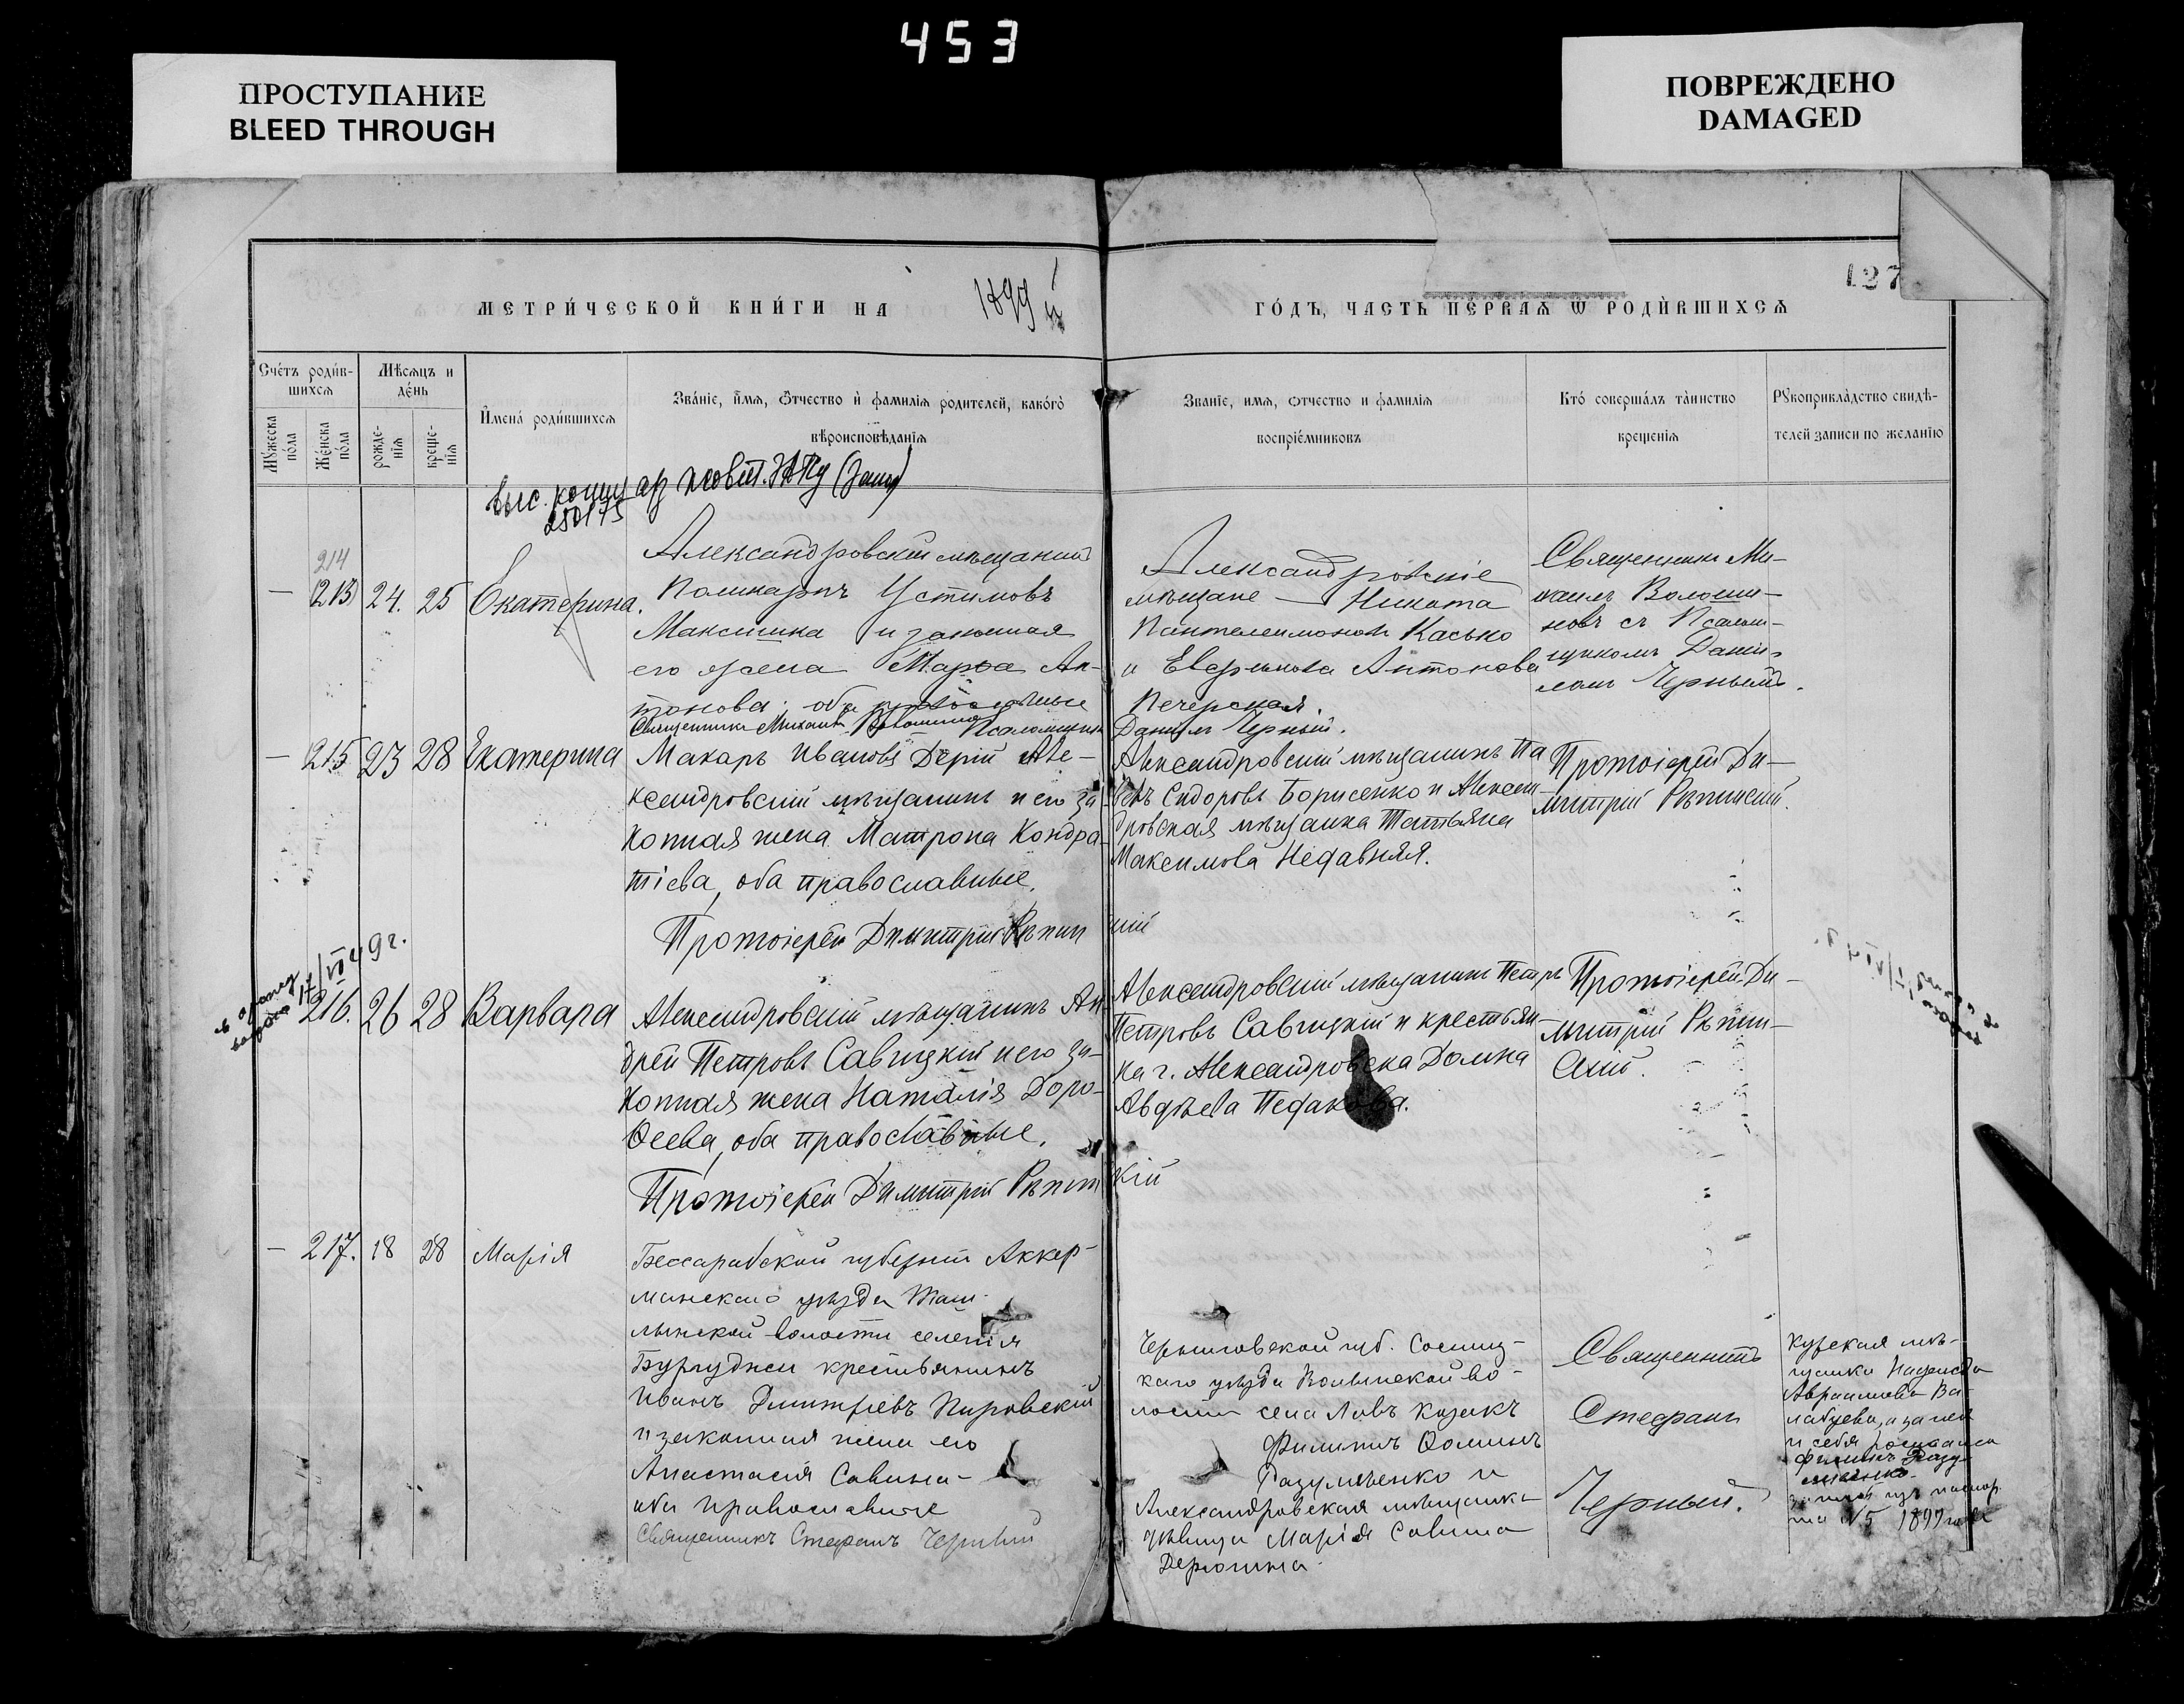 453
ПРОСТУПАНИЕ
BLEED THROUGH
ПОВРЕЖДЕНО
DAMAGED
127
МЕТРИ́ЧЕСКОЙ КНИ́ГИ НА 1899 й
ГО́ДЪ, ЧАСТЬ ПЕ́РВАѦ Ѡ РОДИ́ВШИХСѦ
Счéтъ роди́в-
шихсѧ
Мѣ́сѧцъ и
дéнь
Мꙋ́жеска
по́ла
Же́нска
по́ла
рожде-
нїѧ
креще-
нїѧ
И҆мена̀ роди́вшихсѧ
Зва́нїе, и҆́мѧ, ѻ҆́тчество и҆ фамилїѧ родителей, како́гѡ
вѣроисповѣ́данїѧ
Зва́нїе, имѧ, ѻтчество и фамилїѧ
воспрїе́мниковъ
Кто́ соверша́лъ та́инство
креще́нїѧ
Рꙋкоприкла́дство свидѣ́-
телей записи по жела́нїю
250175
214
— 213 24. 25 Екатерина.
Александровскій мѣщанинъ
Поликарпъ Устимовъ
Максимка и законная
его жена Марѳа Ан-
тонова. оба православные
Священникъ Михаилъ Псаломщикъ
Даніилъ Черный.
Александровскіе
мѣщане — Никита
Пантелеимоновъ Касько
и Евфимія Антонова
Печерская.
Священникъ Ми-
хаилъ Волоши-
новъ съ Псалом-
щикомъ Даніи-
ломъ Чернымъ.
— 215 23 28 Екатерина
Макаръ Ивановъ Дерій Але-
ксандровскій мѣщанинъ и его за-
конная жена Матрона Кондра-
тіева, оба православные.
Протоіерей Димитрій Рѣпинскій
Александровскій мѣщанинъ Па
велъ Сидоровъ Борисенко и Алексан-
дровская мѣщанка Татьяна
Максимова Недавняя.
Протоіерей Ди-
митрій Рѣпинскій.
17/VI 49 г.
216. 26 28 Варвара
Александровскій мѣщанинъ Ан-
дрей Петровъ Савицкій и его за-
конная жена Наталія Доро-
ѳеева, оба православные.
Протоіерей Димитрій Рѣпинскій
Александровскій мѣщанинъ Петръ
Петровъ Савицкій и крестьян-
ка г. Александровска Домна
Авдѣева
Протоіерей Ди-
митрій Рѣпин-
скій.
— 217. 18 28 Марія
Бессарабской губерніи Аккер-
манскаго уѣзда
волости селенія
Бургуджи крестьянинъ
Иванъ Дмитріевъ Пировскій
и законная жена его
Анастасія Савина-
оба православные
Священникъ Стефанъ Черный
Черниговской губ. Сосниц-
каго уѣзда Волынской во-
лости села Ловъ козакъ
Филиппъ Ѳоминъ
Разумѣенко и
Александровская мѣщанка
дѣвица Марія Савина
Дерюгина.
Священникъ
Стефанъ
Черный.
Курская мѣ-
щанка Надежда
Авраамова
и себя росписался
Филиппъ Разу-
мѣенко
та № 5 1899 года